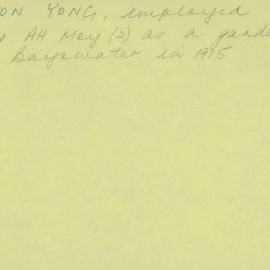 ON YONG, employed
AH Moy (2) as a garde
Bayswater in 1915